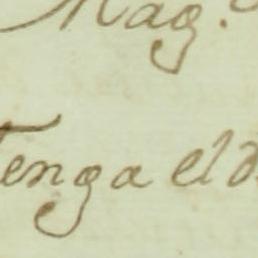 Mag.
Tenga el d